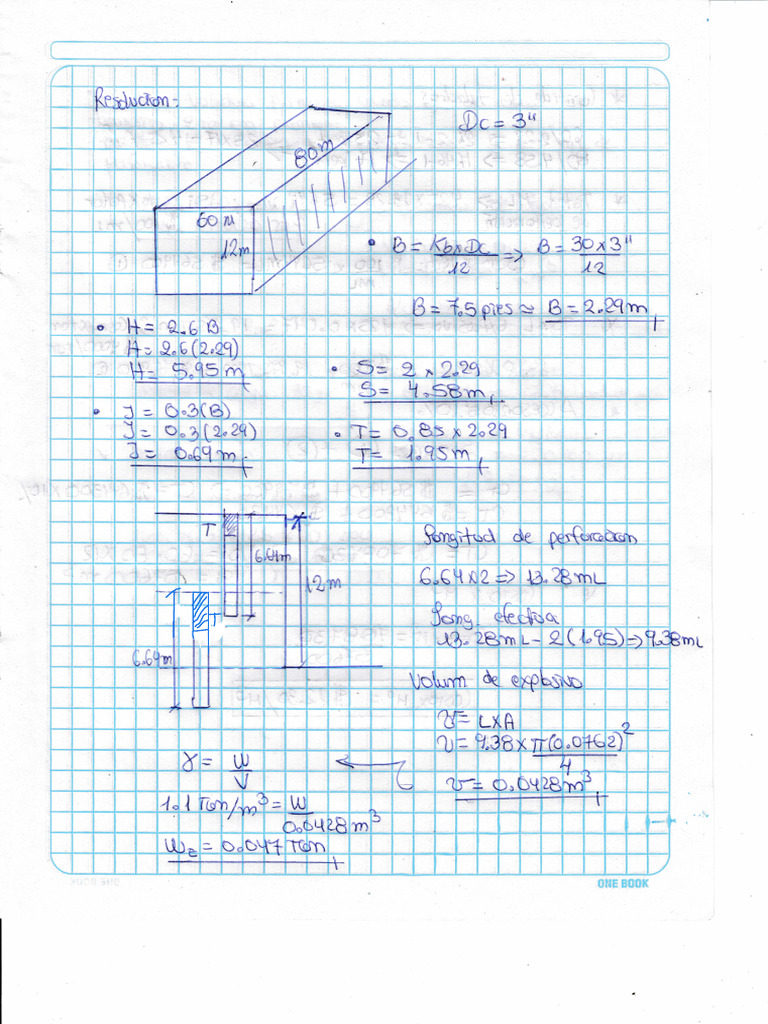 Resolucion:-
Dc = 3"
80 m
60 m
12m
• B = Kb x Dc / 12 => B = 30 x 3" / 12
B = 7.5 pies ≈ B = 2.29 m
• H = 2.6 B
H = 2.6 (2.29)
H = 5.95 m
• S = 2 x 2.29
S = 4.58 m
• J = 0.3 (B)
J = 0.3 (2.29)
J = 0.69 m
• T = 0.85 x 2.29
T = 1.95 m
T
6.64m
12m
T
6.64m
Longitud de perforacion
6.64 x 2 => 13.28 mL
Long. efectiva
13.28 mL - 2 (1.95) => 9.38 mL
Volum de explosivo
V = L x A
V = 9.38 x π(0.0762)² / 4
V = 0.0428 m³
γ = W / V
1.1 Ton/m³ = W / 0.0428 m³
We = 0.047 Ton
ONE BOOK